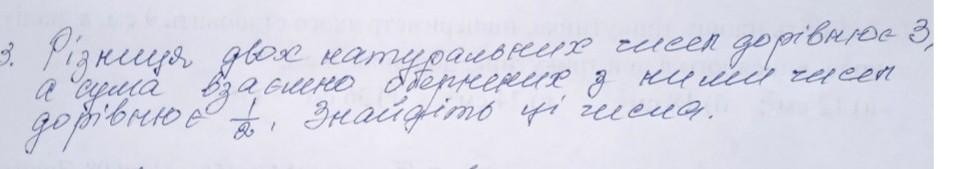 3. Різниця двох натуральних чисел дорівнює 3,
а сума взаємно обернених з ними чисел
дорівнює 1/2. Знайдіть ці числа.